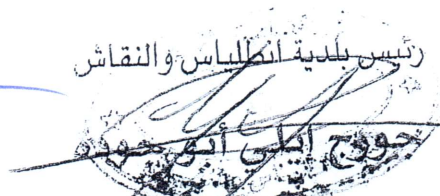 رئيس بلدية انطلياس والنقاش
جورج ايلي أبو جوده